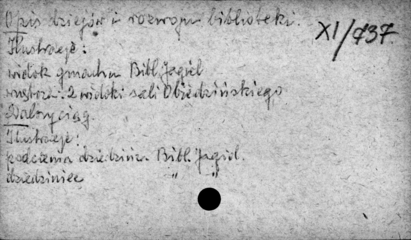 Opis dziejów i rozwoju biblioteki.
XI/737.
Ilustracje:
widok gmachu Bibl. Jagiel
wnętrze: 2 widoki sali Obiedzińskiego
Dalszy ciąg.
Ilustracje:
podziemia dziedzińca Bibl. Jagiel.
dziedziniec " "